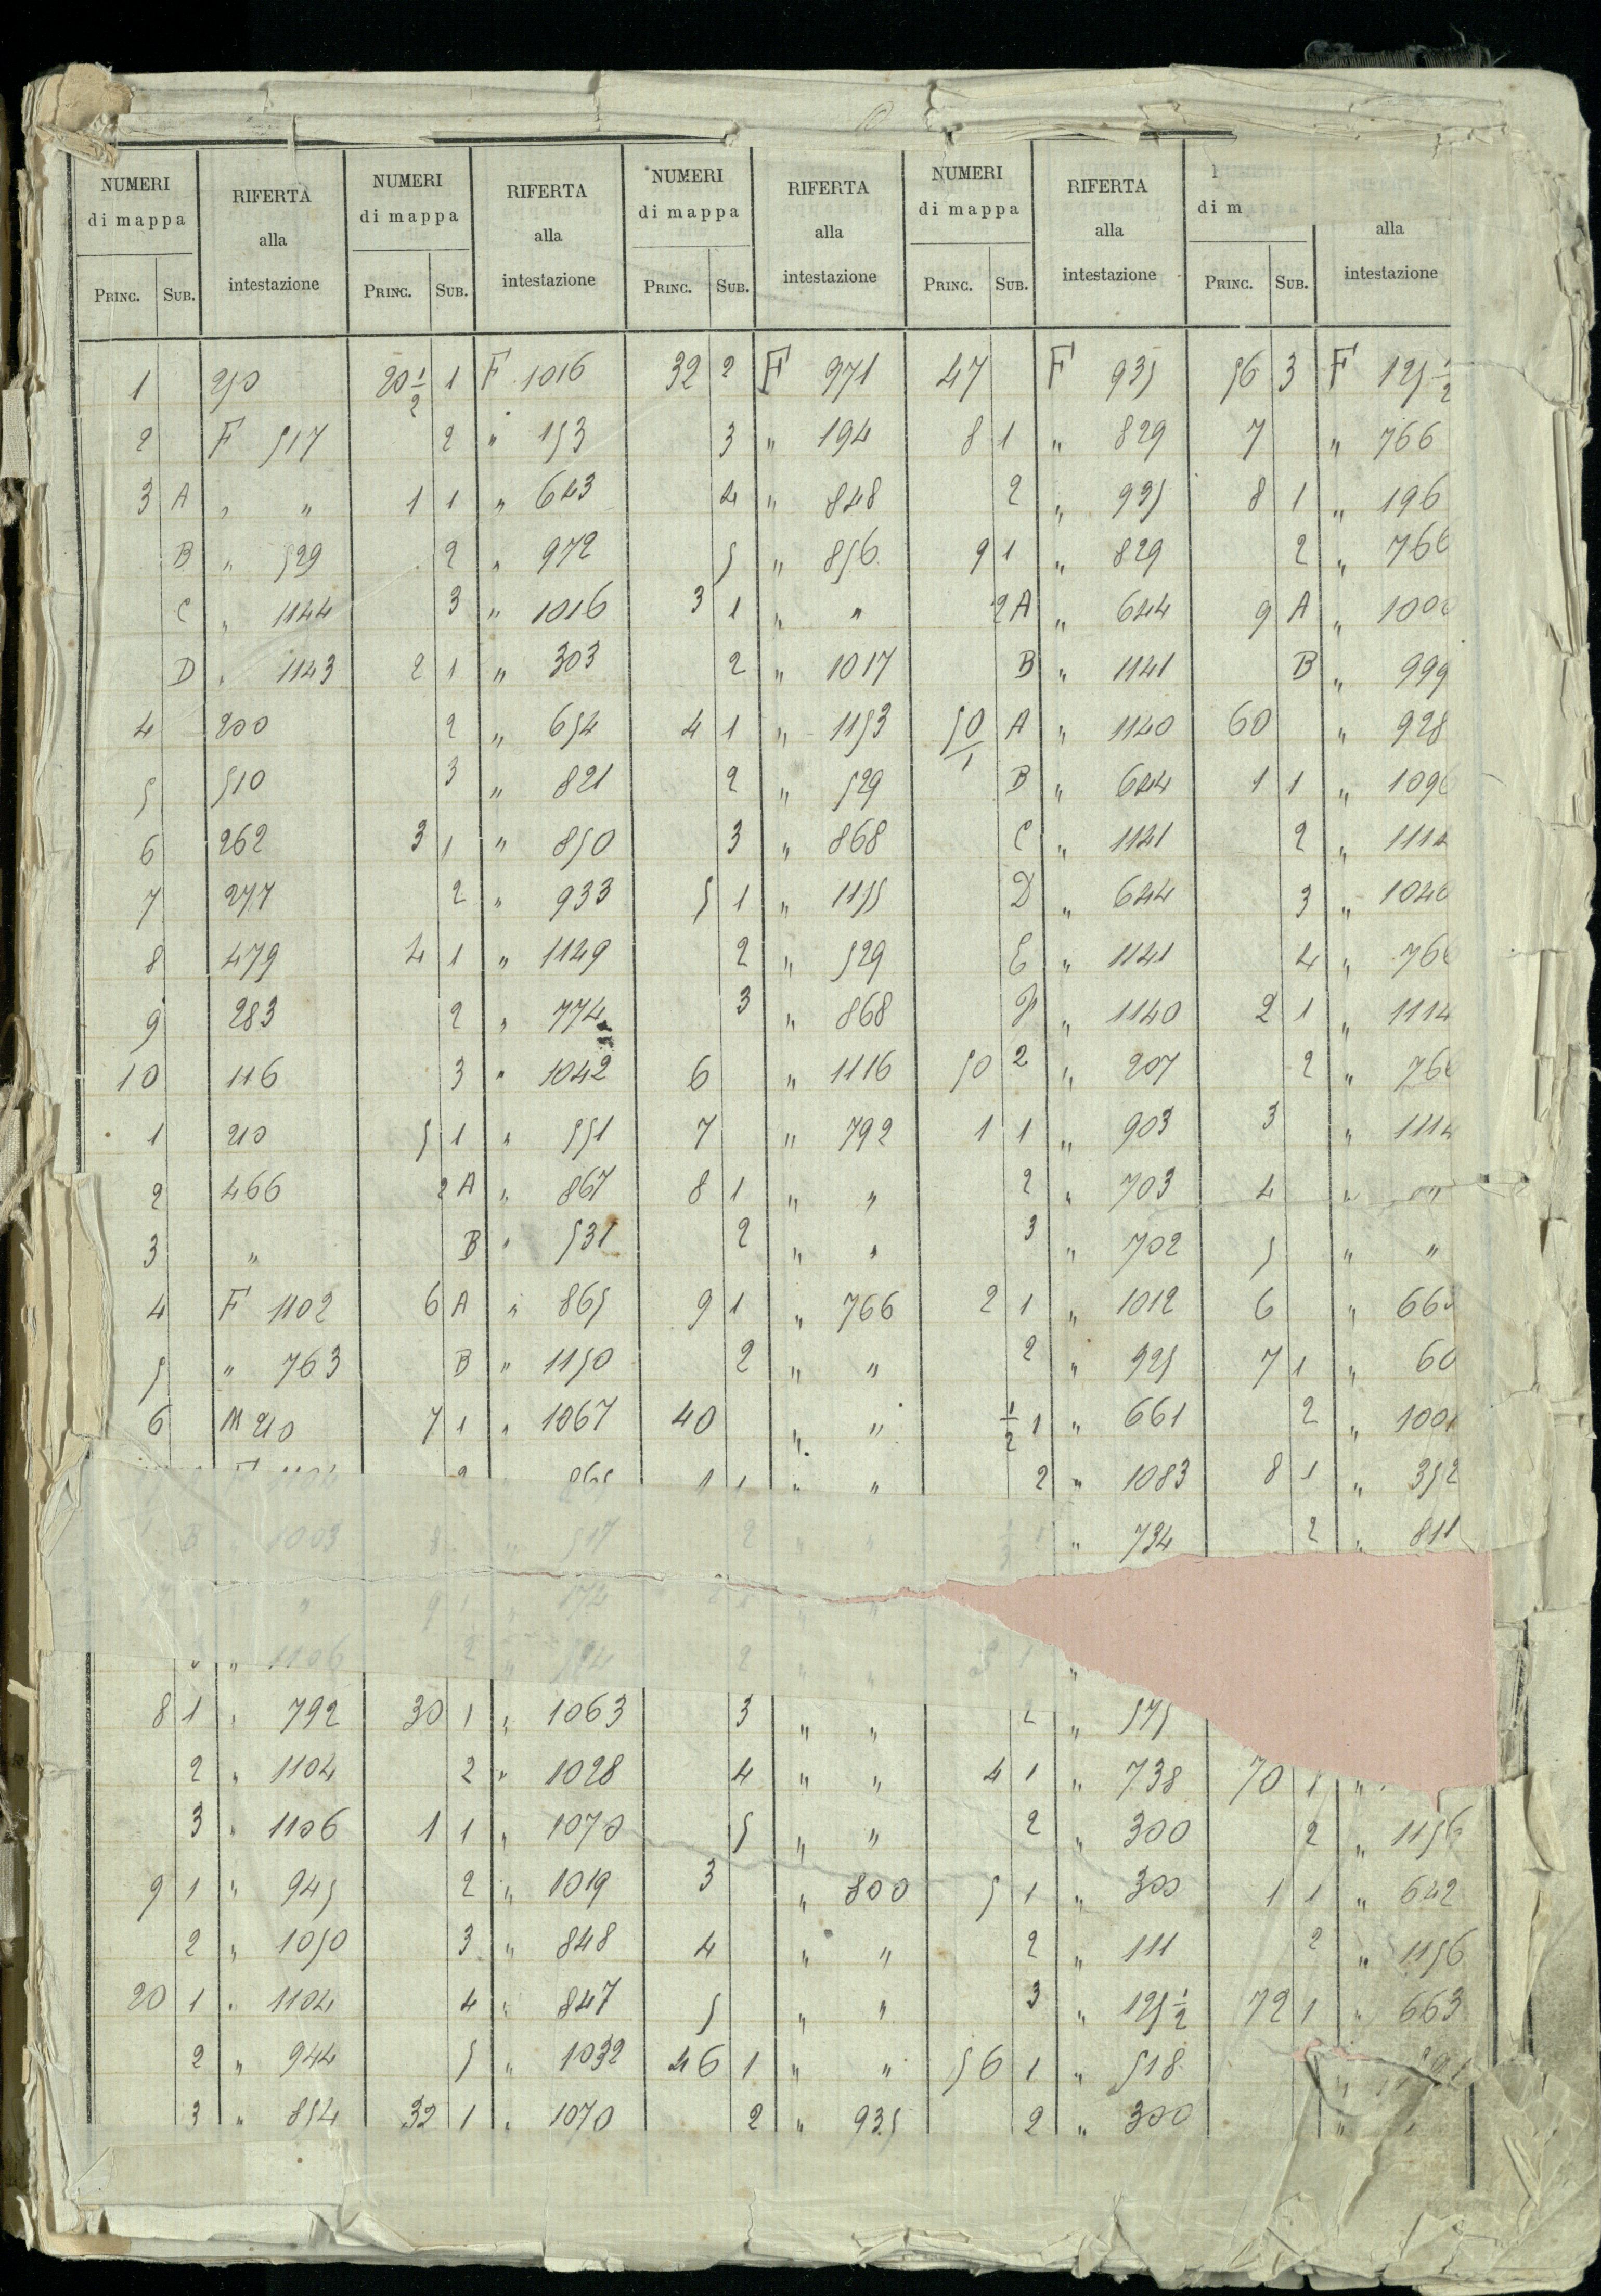 NUMERI di mappa RIFERTA alla intestazione NUMERI di mappa RIFERTA alla intestazione NUMERI di mappa RIFERTA alla intestazione NUMERI di mappa RIFERTA alla intestazione di m alla intestazione
PRINC. SUB. PRINC. SUB. PRINC. SUB. PRINC. SUB. PRINC. SUB.
1 250 20 1/2 1 F 1016 32 2 F 971 47 F 935 56 3 F 125 1/2
2 F 517 2 " 153 3 " 194 8 1 " 829 7 " 766
3 A " " 1 1 " 643 4 " 848 2 " 925 8 1 " 196
B " 529 2 " 972 5 " 856 9 1 " 829 2 " 766
C " 1144 3 " 1016 3 1 " " 2 A " 644 9 A "
D " 1143 2 1 " 303 2 " 1017 B " 1141 B " 999
4 200 2 " 654 4 1 " 1153 50/1 A " 1140 60 " 928
5 510 3 " 821 2 " 529 B " 644 1 1 "
6 262 3 1 " 850 3 " 868 C " 1141 2 " 1114
7 277 2 " 933 5 1 " 1155 D " 644 3 "
8 479 4 1 " 1149 2 " 529 E " 1141 4 " 766
9 283 2 " 774 3 " 868 F " 1140 2 1 " 1114
10 116 3 " 1042 6 " 1116 50 2 " 207 2 " 766
1 210 5 1 " 551 7 " 792 1 1 " 903 3 " 1114
2 466 2 A " 867 8 1 " " 2 " 703 4 " "
3 " B " 531 2 " " 3 " 702 5 " "
4 F 1102 6 A " 865 9 1 " 766 2 1 " 1012 6 "
5 " 763 B " 1150 2 " " 2 " 925 7 1 "
6 M 210 7 1 " 1067 40 " " 1/2 1 " 661 2 "
2 865 1 1 " " 2 " 1083 8 1 " 352
B " 1003 8 " 517 2 " " " 734 2 " 811
" 9 1 " 174 " "
" 1106 2 " 2 " " 3 1 "
8 1 " 792 30 1 " 1063 3 " " 2 " 575
2 " 1104 2 " 1028 4 " " 4 1 " 738 70 1 "
3 " 1106 1 1 " 1070 5 " " 2 " 300 2 " 1156
9 1 " 945 2 " 1019 3 " 800 5 1 " 300 1 1 " 642
2 " 1050 3 " 848 4 " " 2 " 111 2 " 1156
20 1 " 1104 4 " 847 5 " " 3 " 125 1/2 72 1 " 663
2 " 944 5 " 1032 46 1 " " 56 1 " 518 "
3 " 854 32 1 " 1070 2 " 935 2 " 300 "